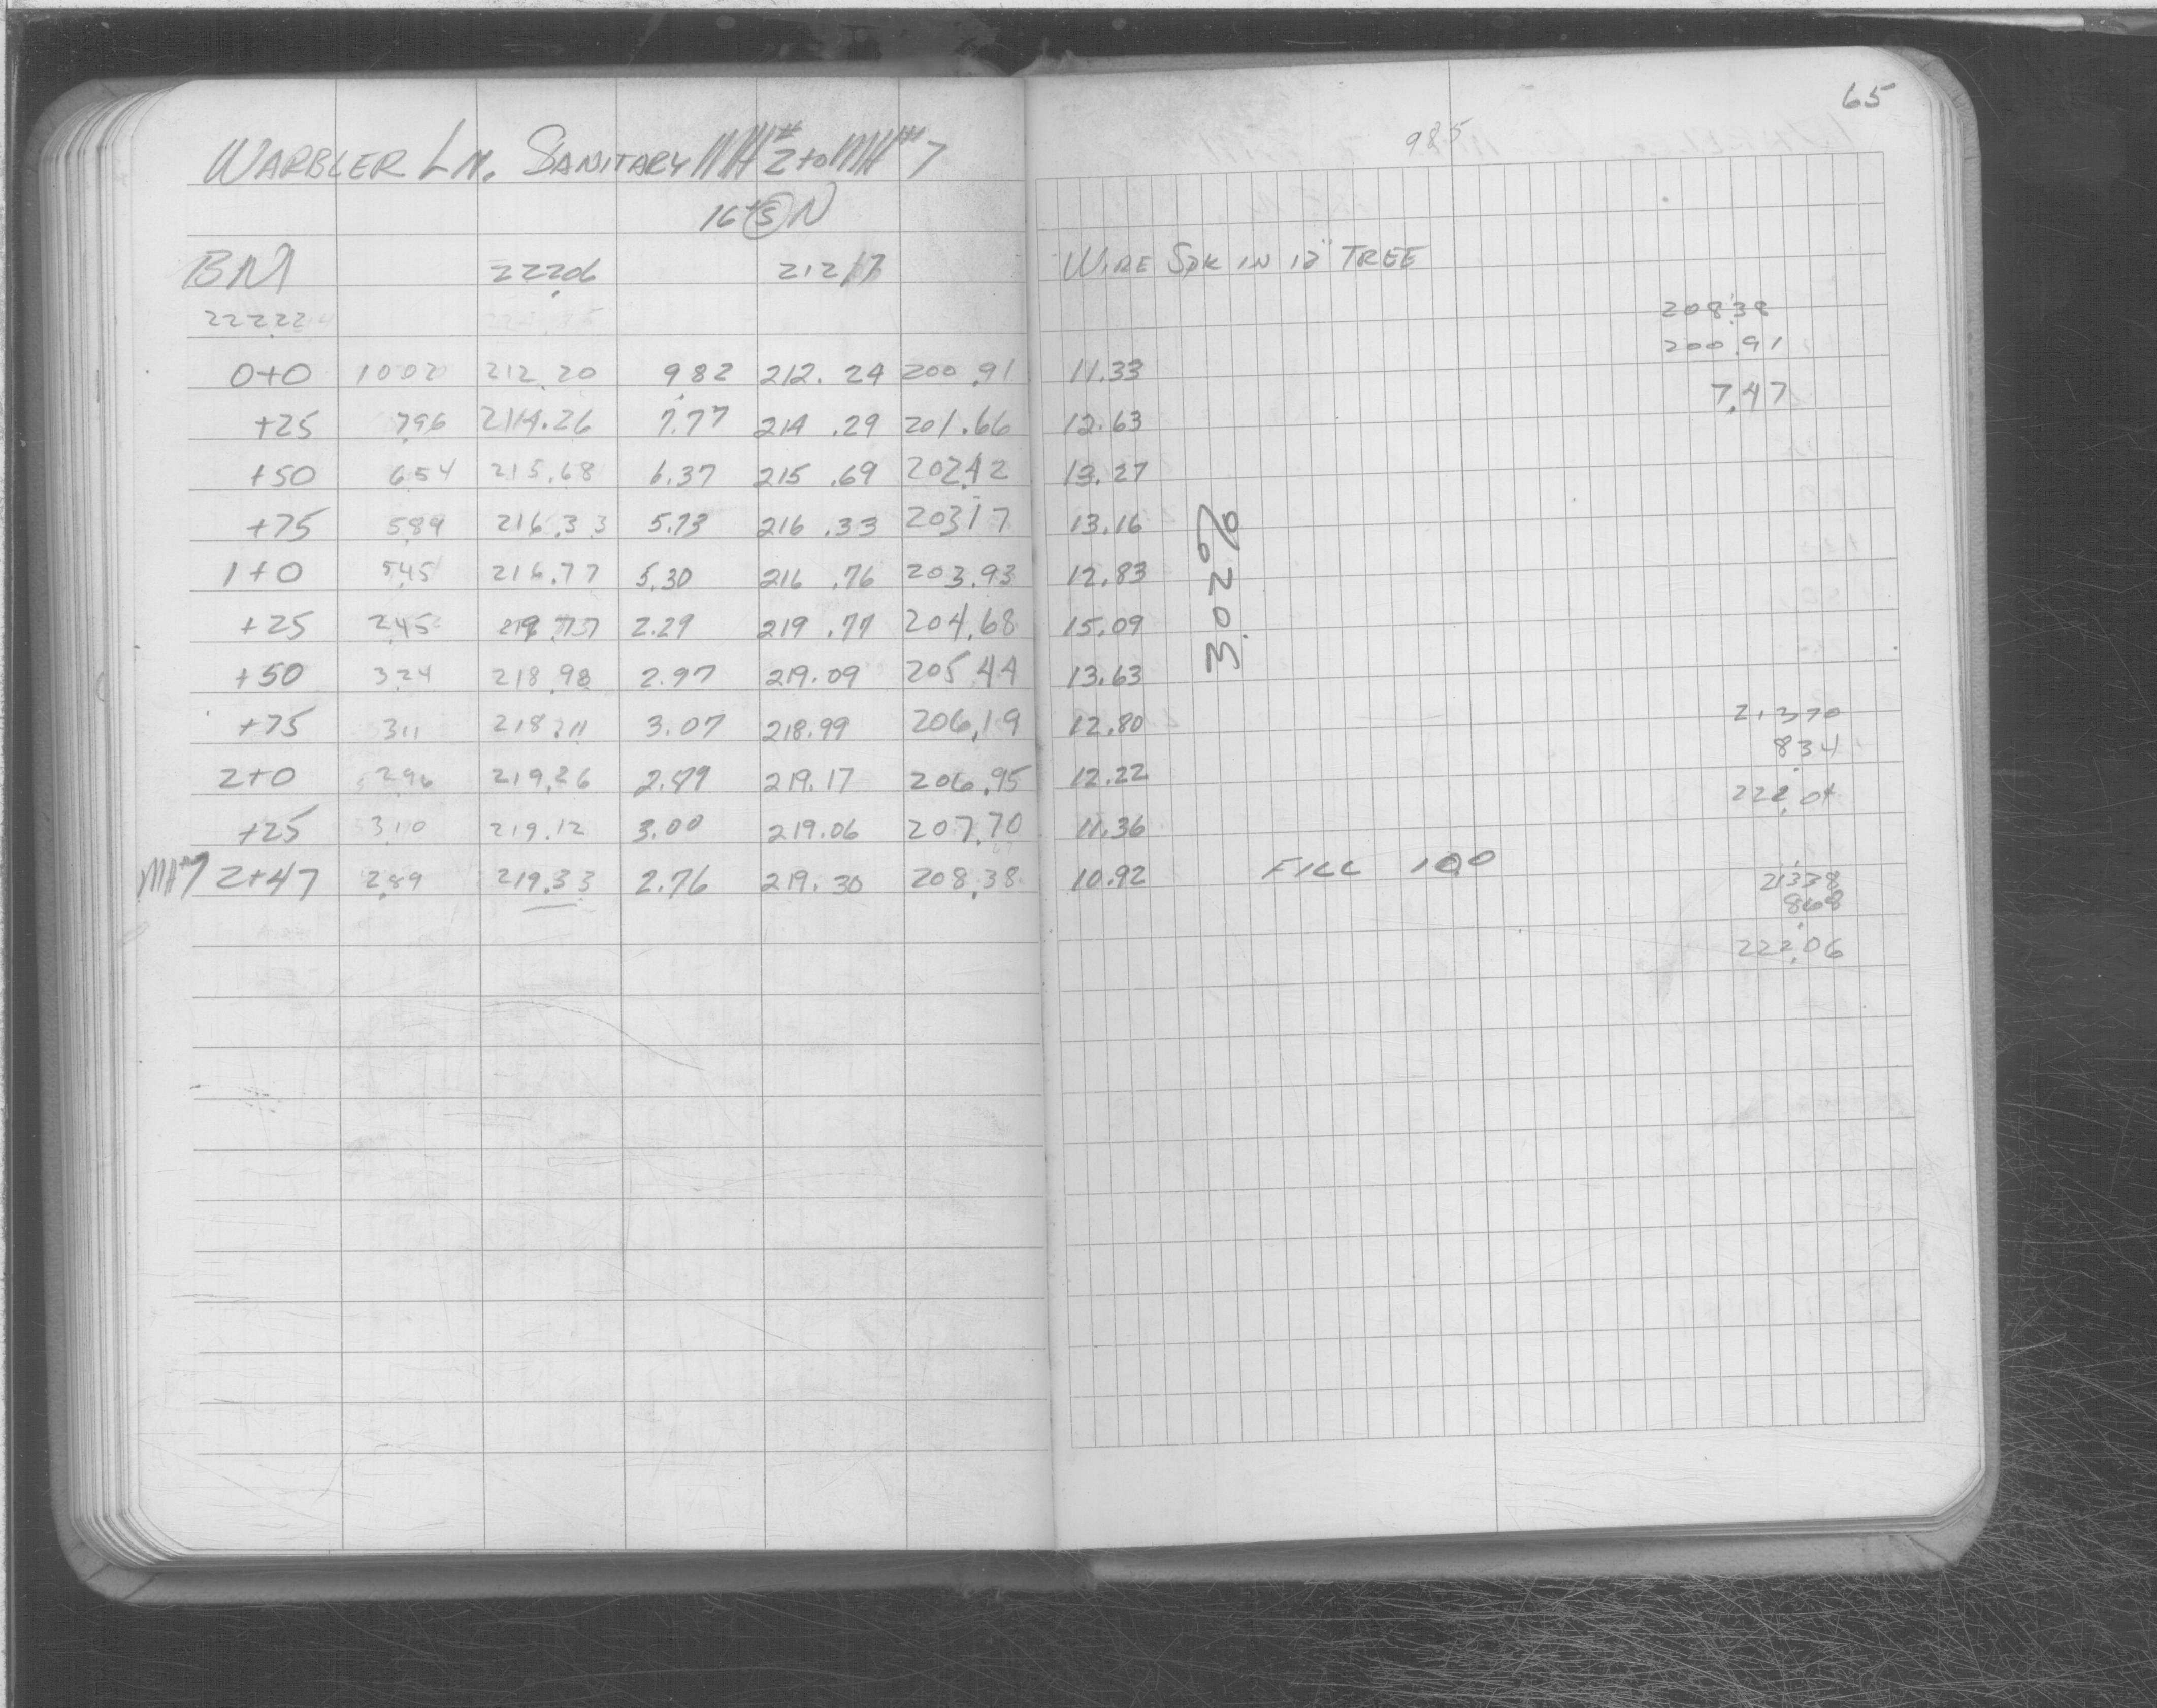 65
98.5
WARBLER LN. SANITARY MH#2 to MH#7
16+5 N
BM 222.06 212.17 WIRE SPK IN 12" TREE
222.22
208.38
200.91
7.47
0+0 10.02 212.20 9.82 212.24 200.91 11.33
+25 7.96 214.26 7.77 214.29 201.66 12.63
+50 6.54 215.68 6.37 215.69 202.42 13.27
+75 5.89 216.33 5.73 216.33 203.17 13.16
1+0 5.45 216.77 5.30 216.76 203.93 12.83
+25 2.45 219.77 2.29 219.77 204.68 15.09
3.02%
+50 3.24 218.98 2.97 219.09 205.44 13.63
+75 3.11 218.11 3.07 218.99 206.19 12.80
2+0 2.96 219.26 219.17 206.95 12.22
+25 3.10 219.12 3.00 219.06 207.70 11.36
MH#7 2+47 2.89 219.33 2.76 219.30 208.38 10.92 FILL 1.00
213.70
8.34
222.04
213.38
8.68
222.06